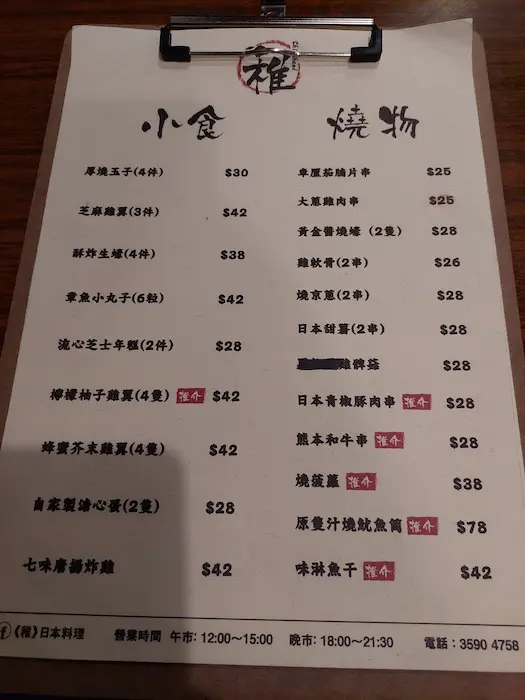 稚
小食
厚燒玉子(4件) $30
芝麻雞翼(3件) $42
酥炸生蠔(4件) $38
章魚小丸子(6粒) $42
流心芝士年糕(2件) $28
檸檬柚子雞翼(4隻) 推介 $42
蜂蜜芥末雞翼(4隻) $42
自家製溏心蛋(2隻) $28
七味唐揚炸雞 $42
燒物
車厘茄腩片串 $25
大蔥雞肉串 $25
黃金醬燒蠔 (2隻) $28
雞軟骨(2串) $26
燒京蔥(2串) $28
日本甜薯(2串) $28
雞髀菇 $28
日本青椒豚肉串 推介 $28
熊本和牛串 推介 $28
燒菠蘿 推介 $38
原隻汁燒魷魚筒 推介 $78
味淋魚干 推介 $42
《稚》日本料理 營業時間 午市: 12:00～15:00 晚市: 18:00～21:30 電話：3590 4758